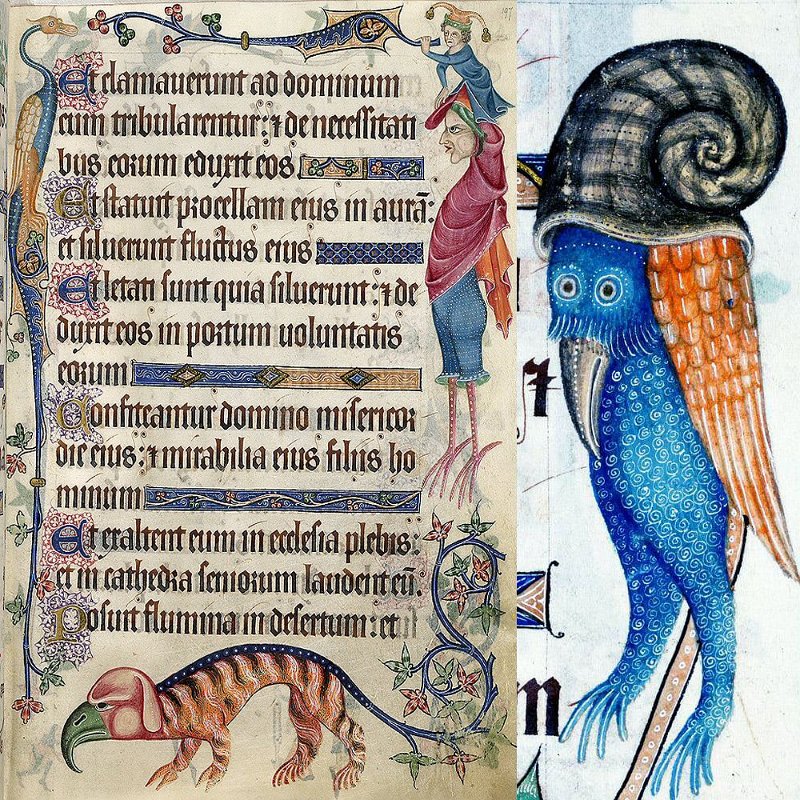 Et clamauerunt ad dominum
cum tribularentur: ⁊ de necessitati
bus eorum eduxit eos
Et statuit procellam eius in aurā:
et siluerunt fluctus eius
Et letati sunt quia siluerunt: ⁊ de
duxit eos in portum uoluntatis
eorum
Confiteantur domino misericor
die eius: ⁊ mirabilia eius filiis ho
minum
Et exaltent eum in ecclesia plebis:
et in cathedra seniorum laudent eū.
Posuit flumina in desertum: et
⁊
m